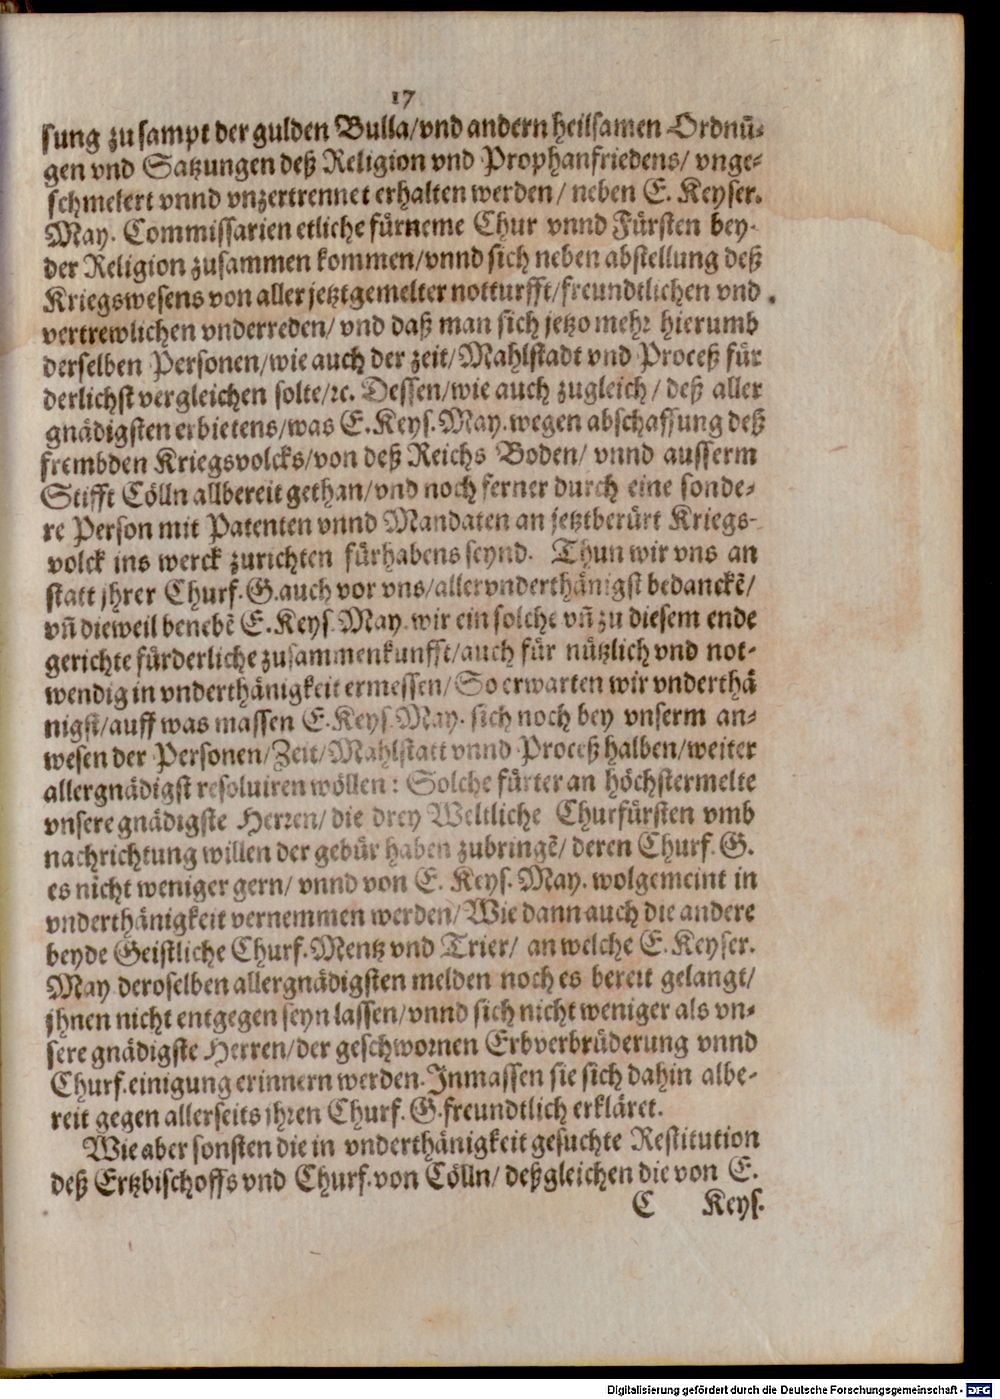 17
sung zu sampt der gulden Bulla/vnd andern heilsamen Ordnũ-
gen vnd Satzungen deß Religion vnd Prophanfriedens/ vnge-
schmelert vnnd vnzertrennet erhalten werden/ neben E. Keyser.
May. Commissarien etliche fürneme Chur vnnd Fürsten bey-
der Religion zusammen kommen/vnnd sich neben abstellung deß
Kriegswesens von aller jetztgemelter notturfft/freundtlichen vnd
vertrewlichen vnderreden/ vnd daß man sich jetzo mehr hierumb
derselben Personen/wie auch der zeit/Mahlstadt vnd Proceß für
derlichst vergleichen solte/ꝛc. Dessen/wie auch zugleich/ deß aller
gnädigsten erbietens/was E. Keys. May. wegen abschaffung deß
frembden Kriegsvolcks/von deß Reichs Boden/ vnnd ausserm
Stifft Cölln allbereit gethan/vnd noch ferner durch eine sonde-
re Person mit Patenten vnnd Mandaten an jetztberürt Kriegs-
volck ins werck zurichten fürhabens seynd. Thun wir vns an
statt jhrer Churf. G. auch vor vns/allervnderthänigst bedanckẽ/
vñ dieweil benebẽ E. Keys. May. wir ein solche vñ zu diesem ende
gerichte fürderliche zusammenkunfft/auch für nützlich vnd not-
wendig in vnderthänigkeit ermessen/So erwarten wir vnderthä
nigst/auff was massen E. Keys. May. sich noch bey vnserm an-
wesen der Personen/Zeit/Mahlstatt vnnd Proceß halben/weiter
allergnädigst resoluiren wöllen: Solche fürter an höchstermelte
vnsere gnädigste Herren/ die drey Weltliche Churfürsten vmb
nachrichtung willen der gebür haben zubringẽ/ deren Churf. G.
es nicht weniger gern/ vnnd von E. Keys. May. wolgemeint in
vnderthänigkeit vernemmen werden/Wie dann auch die andere
beyde Geistliche Churf. Mentz vnd Trier/ an welche E. Keyser.
May deroselben allergnädigsten melden noch es bereit gelangt/
jhnen nicht entgegen seyn lassen/vnnd sich nicht weniger als vn-
sere gnädigste Herren/der geschwornen Erbverbrüderung vnnd
Churf. einigung erinnern werden. Inmassen sie sich dahin albe-
reit gegen allerseits jhren Churf. G. freundtlich erkläret.
Wie aber sonsten die in vnderthänigkeit gesuchte Restitution
deß Ertzbischoffs vnd Churf. von Cölln/ deßgleichen die von E.
C Keys.
Digitalisierung gefördert durch die Deutsche Forschungsgemeinschaft - DFG